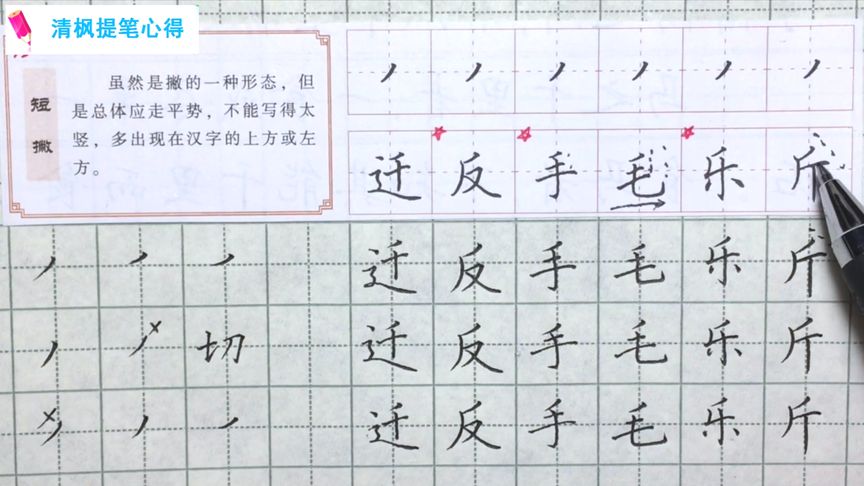 清枫提笔心得
短撇
虽然是撇的一种形态，但
是总体应走平势，不能写得太
竖，多出现在汉字的上方或左
方。
迁反手毛乐斤
迁反手毛乐斤
切迁反手毛乐斤
迁反手毛乐斤